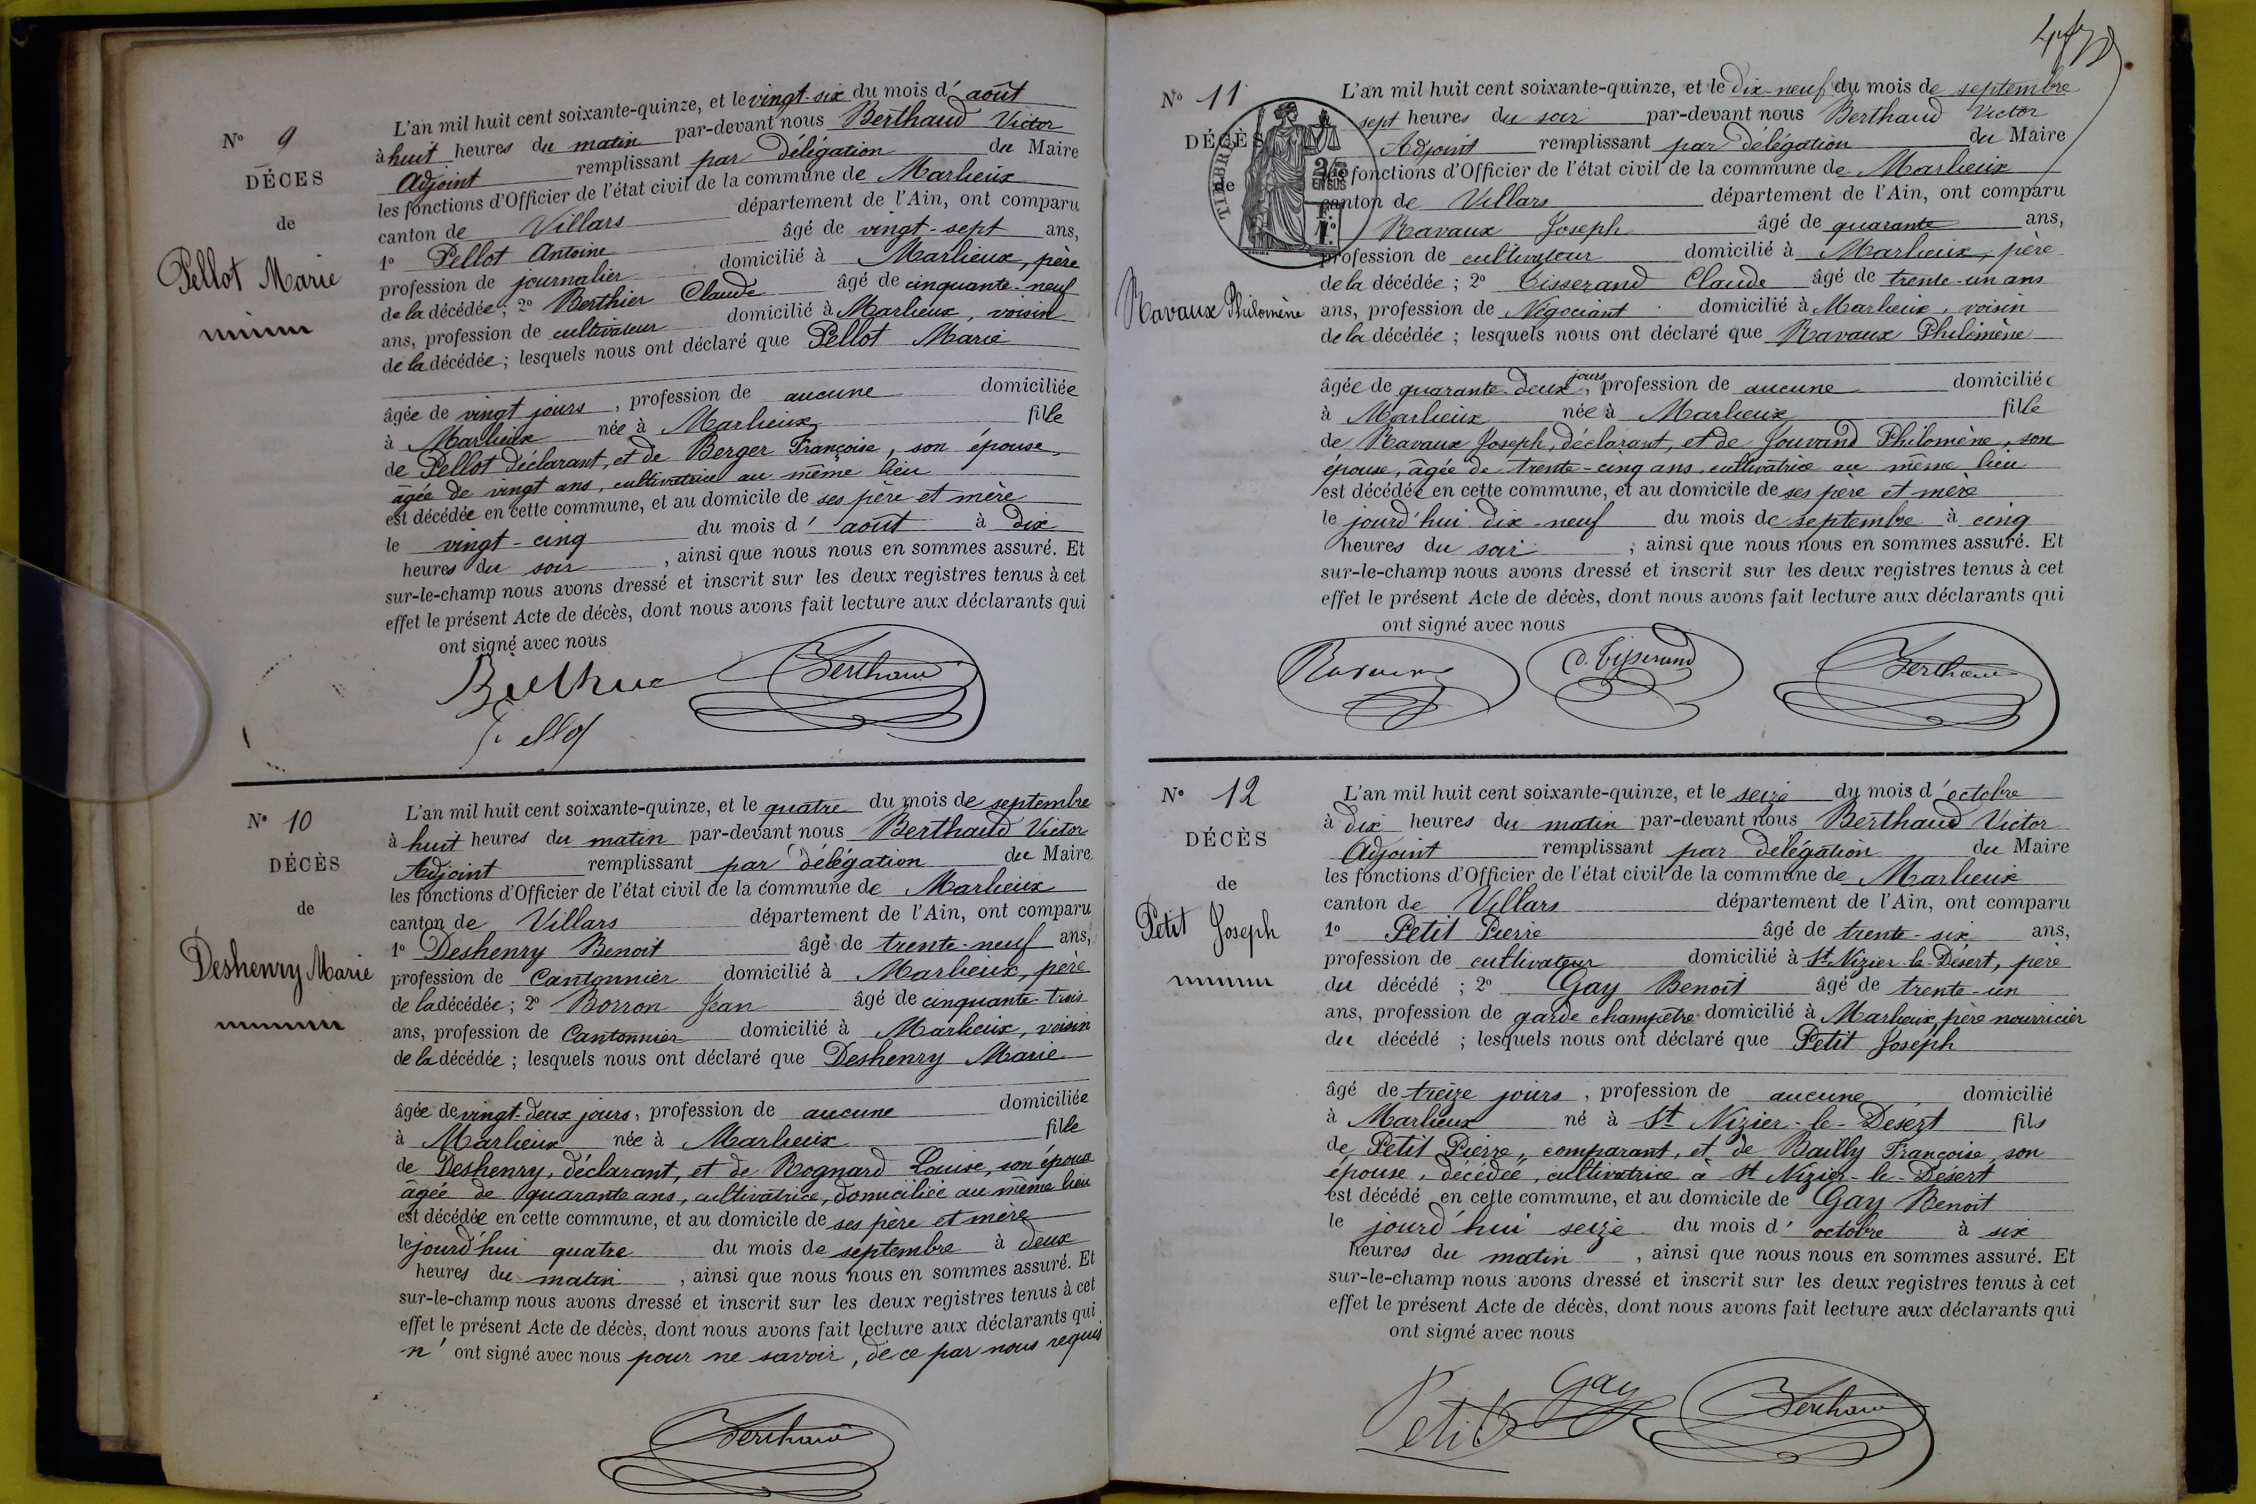 N° 9
DÉCES
de
Pellot Marie
L'an mil huit cent soixante-quinze, et le vingt-six du mois d'août
à huit heures du matin par-devant nous Berthaud Victor
Adjoint remplissant par délégation du Maire
les fonctions d'Officier de l'état civil de la commune de Marlieux
canton de Villars département de l'Ain, ont comparu
1° Pellot Antoine âgé de vingt-sept ans,
profession de journalier domicilié à Marlieux, père
de la décédée; 2° Berthier Claude âgé de cinquante-neuf
ans, profession de cultivateur domicilié à Marlieux, voisin
de la décédée; lesquels nous ont déclaré que Pellot Marie
âgée de vingt jours, profession de aucune domiciliée
à Marlieux née à Marlieux fille
de Pellot déclarant, et de Berger Françoise, son épouse,
âgée de vingt ans, cultivatrice au même lieu
est décédée en cette commune, et au domicile de ses père et mère
le vingt-cinq du mois d'août à dix
heures du soir, ainsi que nous nous en sommes assuré. Et
sur-le-champ nous avons dressé et inscrit sur les deux registres tenus à cet
effet le présent Acte de décès, dont nous avons fait lecture aux déclarants qui
ont signé avec nous
Berthaud
Pellot
N° 10
DÉCÈS
de
Deshenry Marie
L'an mil huit cent soixante-quinze, et le quatre du mois de septembre
à huit heures du matin par-devant nous Berthaud Victor
Adjoint remplissant par délégation du Maire
les fonctions d'Officier de l'état civil de la commune de Marlieux
canton de Villars département de l'Ain, ont comparu
1° Deshenry Benoit âgé de trente-neuf ans,
profession de Cantonnier domicilié à Marlieux, père
de la décédée; 2° Borron Jean âgé de cinquante-trois
ans, profession de Cantonnier domicilié à Marlieux, voisin
de la décédée; lesquels nous ont déclaré que Deshenry Marie
âgée de vingt-deux jours, profession de aucune domiciliée
à Marlieux née à Marlieux fille
de Deshenry, déclarant, et de Rognard Louise, son épouse
âgée de quarante ans, cultivatrice, domiciliée au même lieu
est décédée en cette commune, et au domicile de ses père et mère
le jourd'hui quatre du mois de septembre à deux
heures du matin, ainsi que nous nous en sommes assuré. Et
sur-le-champ nous avons dressé et inscrit sur les deux registres tenus à cet
effet le présent Acte de décès, dont nous avons fait lecture aux déclarants qui
n'ont signé avec nous pour ne savoir, de ce par nous requis
Berthaud
N° 11
DÉCÈS
de
TIMBRE
2/10 EN SUS
1 F.
Ravaux Philomène
L'an mil huit cent soixante-quinze, et le dix-neuf du mois de septembre
sept heures du soir par-devant nous Berthaud Victor
Adjoint remplissant par délégation du Maire
les fonctions d'Officier de l'état civil de la commune de Marlieux
canton de Villars département de l'Ain, ont comparu
Ravaux Joseph âgé de quarante ans,
profession de cultivateur domicilié à Marlieux, père
de la décédée; 2° Tisserand Claude âgé de trente-un ans
ans, profession de Négociant domicilié à Marlieux, voisin
de la décédée; lesquels nous ont déclaré que Ravaux Philomène
âgée de quarante-deux jours, profession de aucune domiciliée
à Marlieux née à Marlieux fille
de Ravaux Joseph, déclarant, et de Jouvand Philomène, son
épouse, âgée de trente-cinq ans, cultivatrice au même lieu
est décédée en cette commune, et au domicile de ses père et mère
le jourd'hui dix-neuf du mois de septembre à cinq
heures du soir; ainsi que nous nous en sommes assuré. Et
sur-le-champ nous avons dressé et inscrit sur les deux registres tenus à cet
effet le présent Acte de décès, dont nous avons fait lecture aux déclarants qui
ont signé avec nous
Ravaux C. Tisserand Berthaud
N° 12
DÉCÈS
de
Petit Joseph
L'an mil huit cent soixante-quinze, et le seize du mois d'octobre
à dix heures du matin par-devant nous Berthaud Victor
Adjoint remplissant par délégation du Maire
les fonctions d'Officier de l'état civil de la commune de Marlieux
canton de Villars département de l'Ain, ont comparu
1° Petit Pierre âgé de trente-six ans,
profession de cultivateur domicilié à St Nizier-le-Désert, père
du décédé; 2° Gay Benoit âgé de trente-un
ans, profession de garde champêtre domicilié à Marlieux, père nourricier
du décédé; lesquels nous ont déclaré que Petit Joseph
âgé de treize jours, profession de aucune domicilié
à Marlieux né à St Nizier-le-Désert fils
de Petit Pierre, comparant, et de Bailly Françoise, son
épouse, décédée, cultivatrice à St Nizier-le-Désert
est décédé en cette commune, et au domicile de Gay Benoit
le jourd'hui seize du mois d'octobre à six
heures du matin, ainsi que nous nous en sommes assuré. Et
sur-le-champ nous avons dressé et inscrit sur les deux registres tenus à cet
effet le présent Acte de décès, dont nous avons fait lecture aux déclarants qui
ont signé avec nous
Petit Gay Berthaud